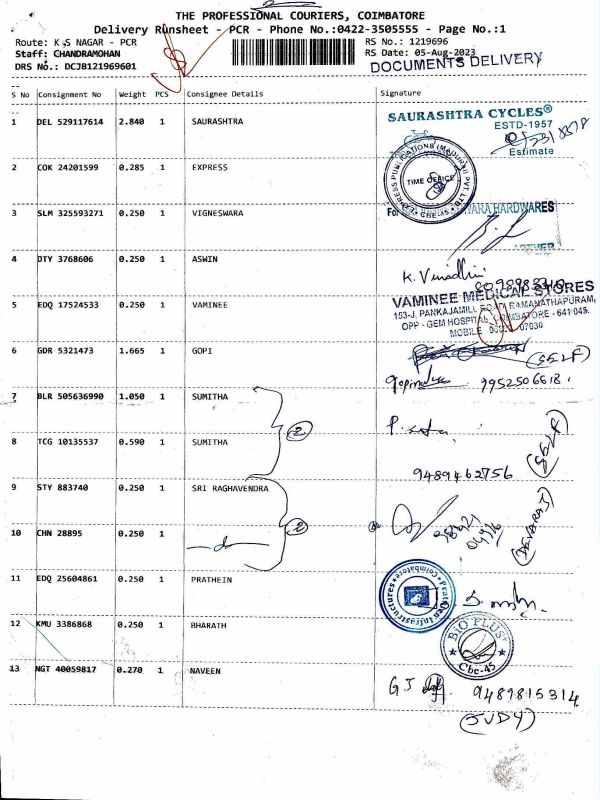 THE PROFESSIONAL COURIERS, COIMBATORE
Delivery Runsheet - PCR - Phone No.:0422-3505555 - Page No.:1
Route: K S NAGAR - PCR
RS No.: 1219696
Staff: CHANDRAMOHAN
RS Date: 05-Aug-2023
DRS No.: DCJB121969601
DOCUMENTS DELIVERY
S No Consignment No Weight PCS Consignee Details Signature
1 DEL 529117614 2.840 1 SAURASHTRA
SAURASHTRA CYCLES®
ESTD-1957
Estimate
2 COK 24201599 0.285 1 EXPRESS
EXPRESS PUBLICATIONS (MADURAI) PVT. LTD.
TIME OFFICE
CBE-45
3 SLM 325593271 0.250 1 VIGNESWARA
For HARDWARES
4 DTY 3768606 0.250 1 ASWIN
K. Vinodhini
5 EDQ 17524533 0.250 1 VAMINEE
VAMINEE MEDICAL STORES
153-J, PANKAJAMILL ROAD, RAMANATHAPURAM,
OPP - GEM HOSPITAL, COIMBATORE - 641 045.
MOBILE 07030
6 GDR 5321473 1.665 1 GOPI
(SELF)
9952506618.
7 BLR 505636990 1.050 1 SUMITHA
2
8 TCG 10135537 0.590 1 SUMITHA
9489462756
(SELF)
9 STY 883740 0.250 1 SRI RAGHAVENDRA
2
10 CHN 28895 0.250 1
—do—
98421
(DEVARAJ)
11 EDQ 25604861 0.250 1 PRATHEIN
Infrastructures
Coimbatore
12 KMU 3386868 0.250 1 BHARATH
BIO PLUS
Cbe-45
13 NGT 40059817 0.270 1 NAVEEN
G J
9489815314
(JUDY)